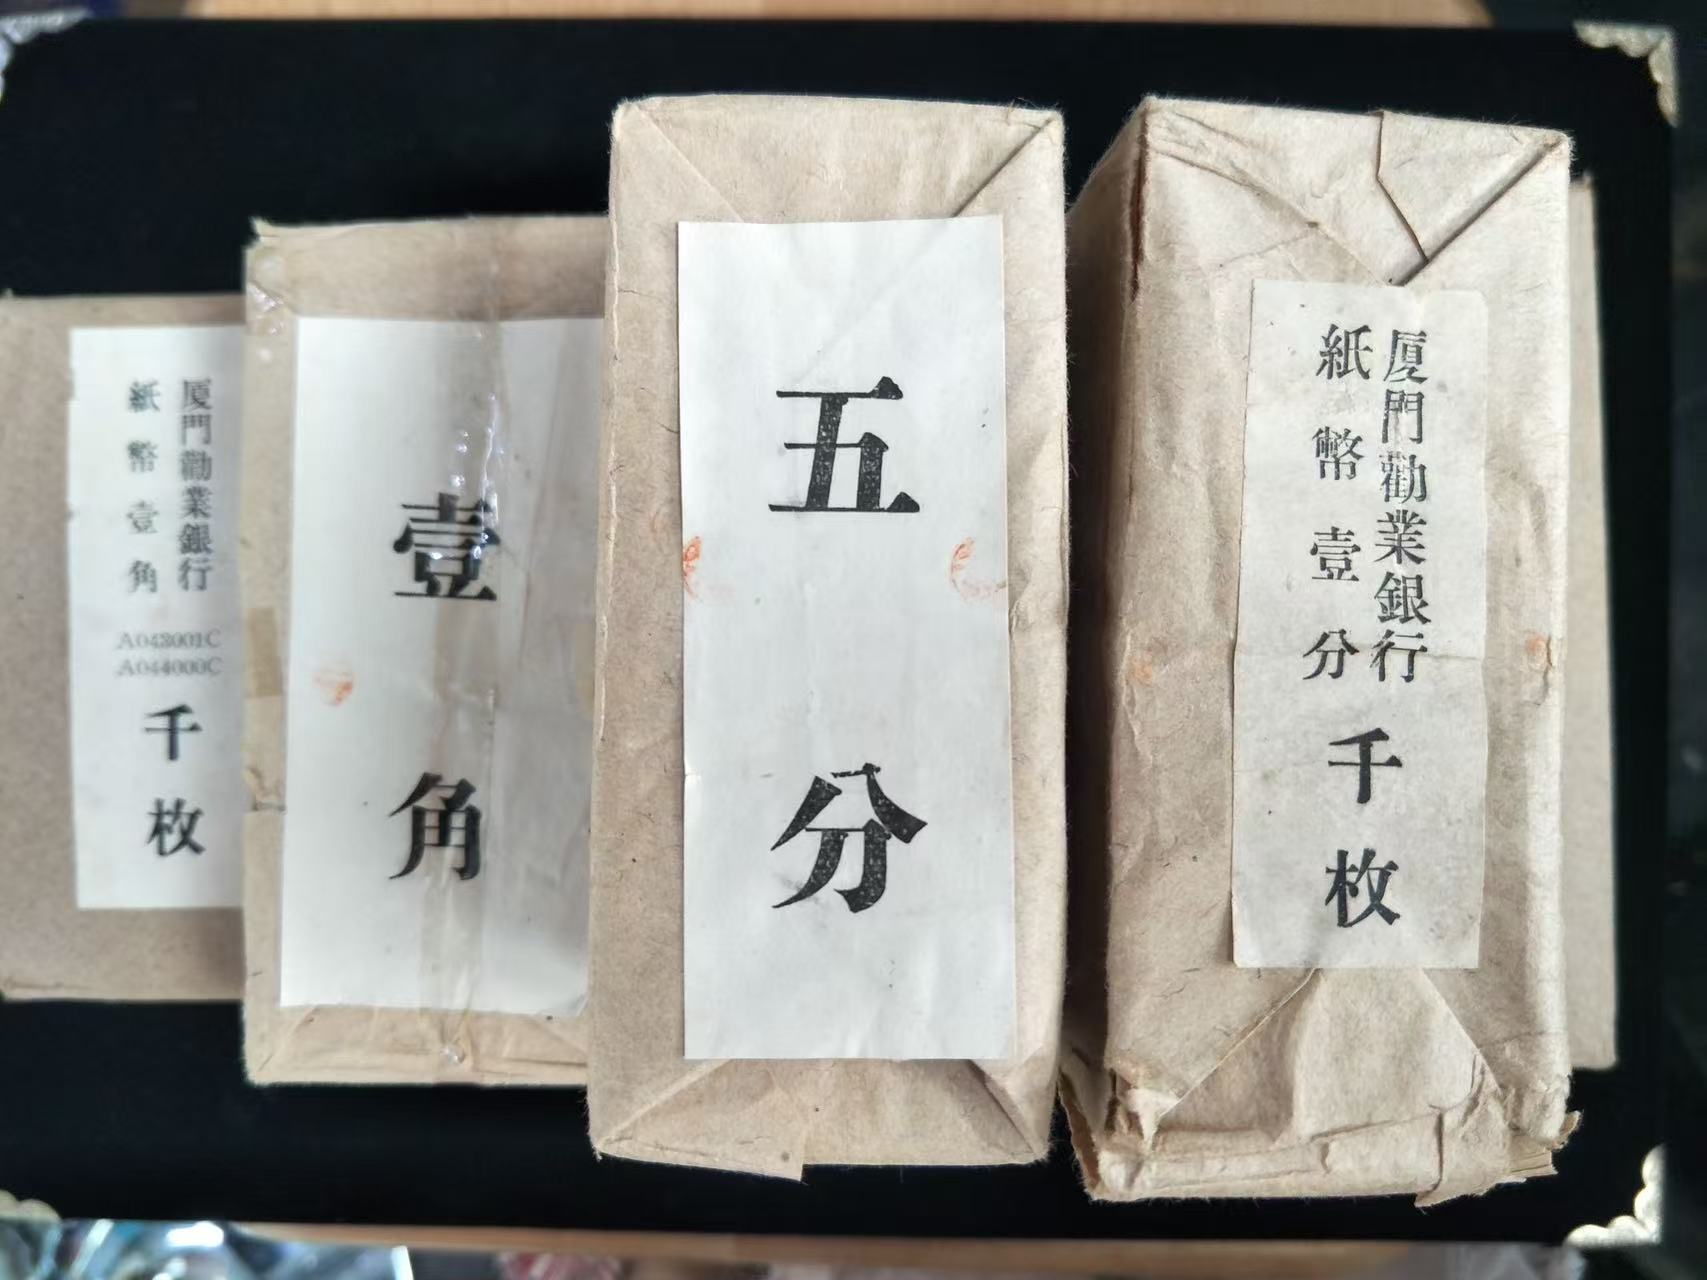 廈門勸業銀行
紙幣壹角
A043001C
A044000C
千枚
壹角
五分
廈門勸業銀行
紙幣壹分
千枚